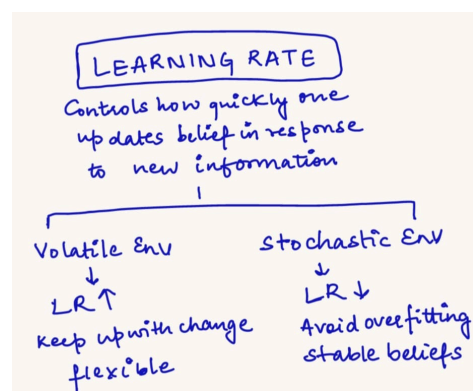 LEARNING RATE
Controls how quickly one
updates belief in response
to new information
Volatile Env
↓
LR ↑
Keep up with change
flexible
Stochastic Env
↓
LR ↓
Avoid overfitting
stable beliefs